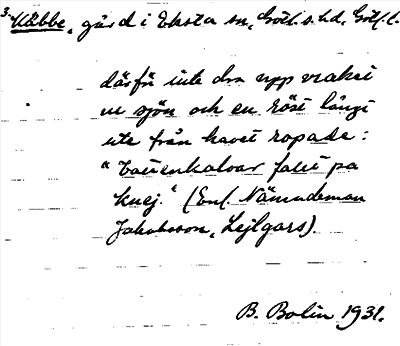 3. Kåbbe, gård i Eksta sn, Götl. s. hd, Götl. l.
därför inte dra upp vraket
ur sjön och en röst långt
ute från havet ropade:
" fallit pa
knej." (Enl. Nämndeman
Jakobsson, Lejlgars).
B. Bolin 1931.